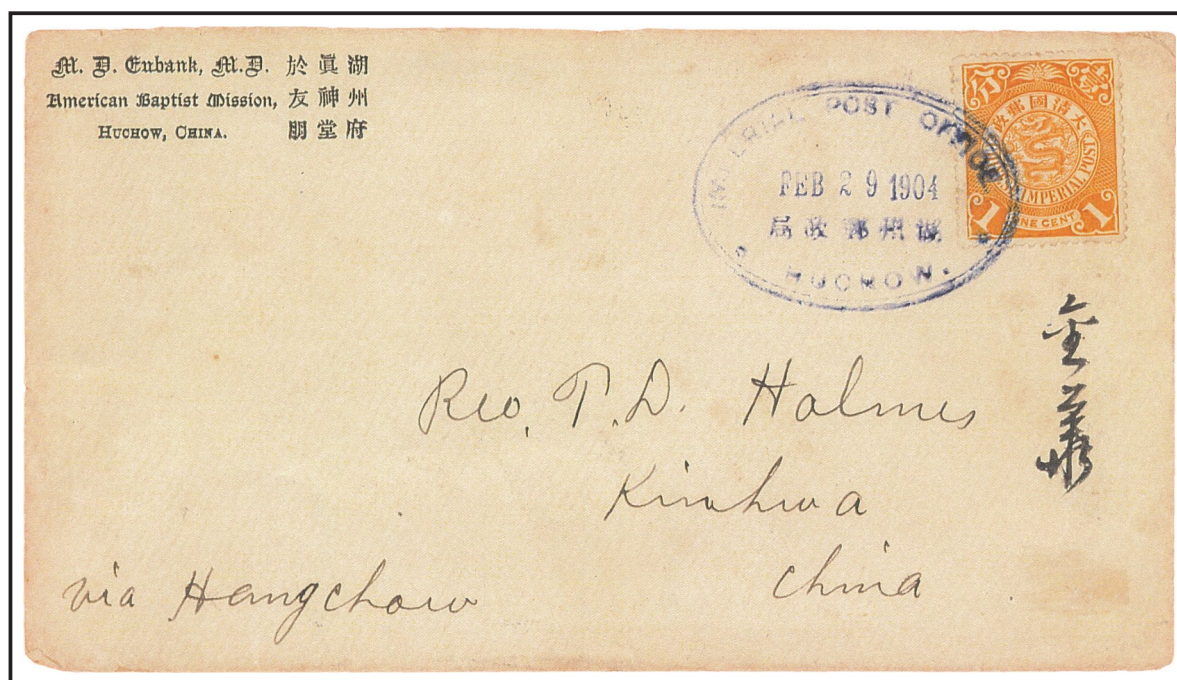 M. D. Eubank, M.D.
American Baptist Mission,
HUCHOW, CHINA.
湖州府
眞神堂
於友朋
IMPERIAL POST OFFICE
FEB 29 1904
湖州郵政局
HUCHOW.
壹分
大清國郵政
IMPERIAL POST
1 ONE CENT 1
金華
Rev. T. D. Holmes
Kinhwa
China
via Hangchow